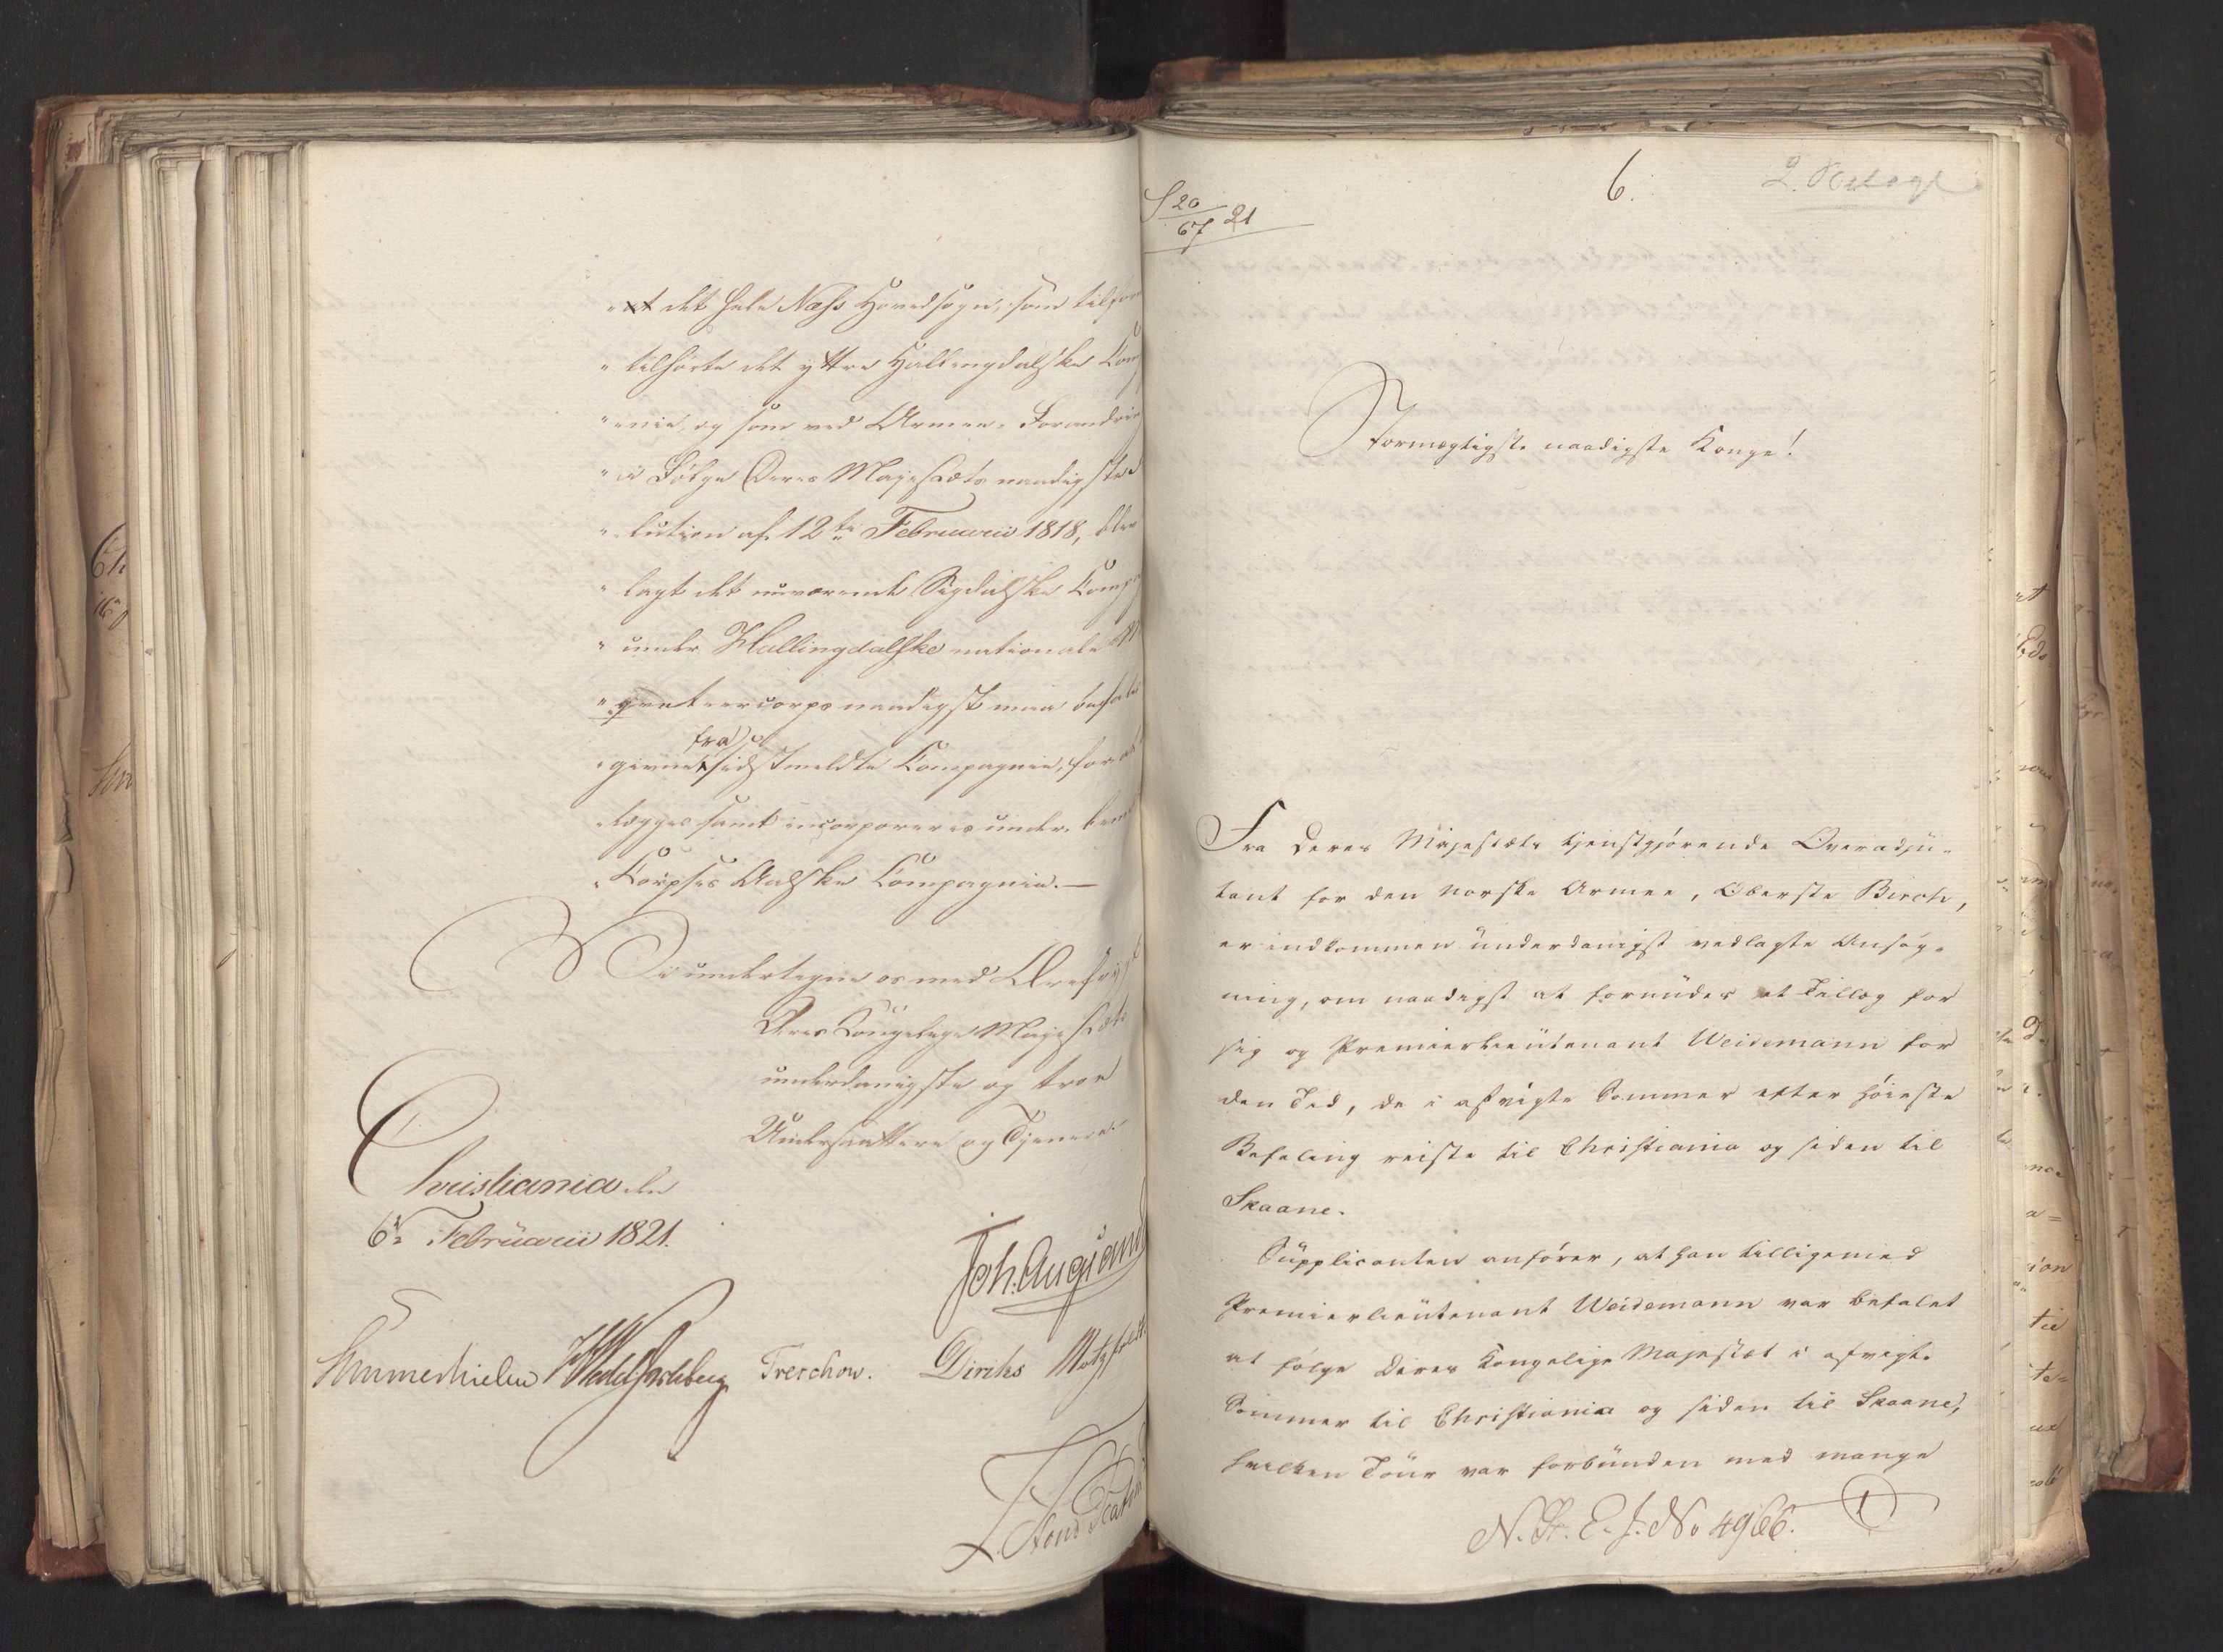 "at det hele Næss Hovedsogn, som tilforn
"tilhørte det yttre Hallingdalske Comp
"enie, og som ved Armee-Forandrin
"i Følge Deres Majestæts naadigste
"lution af 12te Februarii 1818, blev
"lagt det nuværende Sigdalske Comp
"under Hallingdalske nationale
"gevorcorps naadigst maa
fra
"given sidstmeldte Compagnie, for
"lægges samt incorporeres under
"Corpses Aalske Compagnie.—
Vi undertegne os med Ærefrygt
Deres Kongelige Majestæts
underdanigste og troe
Undersaattere og Tjenere
Christiania den
6te Februarii 1821.
Joh. Aug. Sand
Sommerhielm Wedel Jarlsberg Treschow. Diriks Motzfeldt
L
S 20/67 21
6.
2. Bilage
Stormægtigste naadigste Konge!
Fra Deres Majestæts tjenstgjørende Overadju-
tant for den norske Armee, Oberste Birch,
er indkommen underdanigst vedlagte Ansøg-
ning, om naadigst at forundes et Tillæg for
sig og Premierlieutenant Weidemann for
den Tid, de i afvigte Sommer efter høieste
Befaling reiste til Christiania og siden til
Skaane.
Supplicanten anfører, at han tilligemed
Premierlieutenant Weidemann var befalet
at følge Deres Kongelige Majestæt i afvigte
Sommer til Christiania og siden til Skaane,
hvilken Tour var forbunden med mange
N. St. E. J. No 4966.